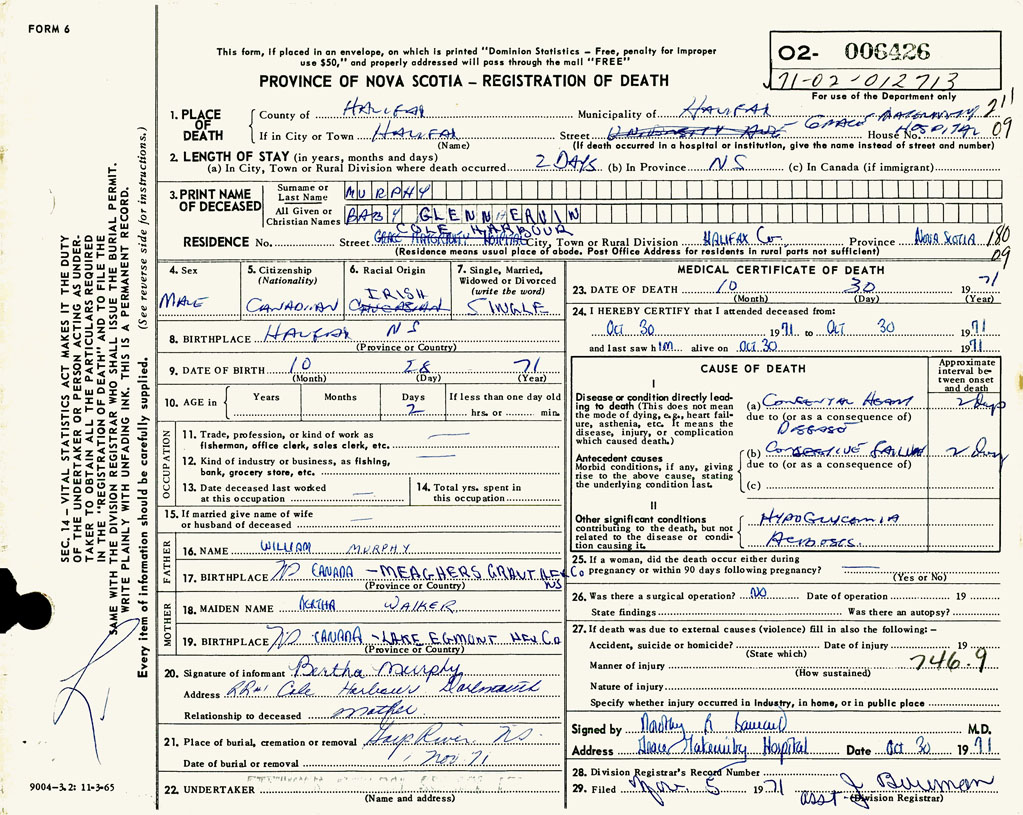 FORM 6
This form, if placed in an envelope, on which is printed "Dominion Statistics – Free, penalty for improper
use $50," and properly addressed will pass through the mail "FREE"
PROVINCE OF NOVA SCOTIA – REGISTRATION OF DEATH
02- 006426
71-02-012713
For use of the Department only
1. PLACE OF DEATH
County of HALIFAX Municipality of HALIFAX 211
If in City or Town HALIFAX Street UNIVERSITY AVE GRACE MATERNITY HOSPITAL House No. 09
(Name) (If death occurred in a hospital or institution, give the name instead of street and number)
2. LENGTH OF STAY (in years, months and days)
(a) In City, Town or Rural Division where death occurred 2 DAYS (b) In Province NS (c) In Canada (if immigrant)
3. PRINT NAME OF DECEASED
Surname or Last Name MURPHY
All Given or Christian Names BABY GLENN ERVIN
COLE HARBOUR
RESIDENCE No. Street GRACE MATERNITY HOSPITAL City, Town or Rural Division HALIFAX Co. Province NOVA SCOTIA 180
09
(Residence means usual place of abode. Post Office Address for residents in rural parts not sufficient)
4. Sex MALE
5. Citizenship (Nationality) CANADIAN
6. Racial Origin IRISH CAUCASIAN
7. Single, Married, Widowed or Divorced (write the word) SINGLE
8. BIRTHPLACE HALIFAX NS
(Province or Country)
9. DATE OF BIRTH 10 28 71
(Month) (Day) (Year)
10. AGE in Years Months Days 2 If less than one day old hrs. or min.
OCCUPATION
11. Trade, profession, or kind of work as fisherman, office clerk, sales clerk, etc.
12. Kind of industry or business, as fishing, bank, grocery store, etc.
13. Date deceased last worked at this occupation
14. Total yrs. spent in this occupation
15. If married give name of wife or husband of deceased
FATHER
16. NAME WILLIAM MURPHY
17. BIRTHPLACE CANADA – MEAGHERS GRANT HFX Co NS
(Province or Country)
MOTHER
18. MAIDEN NAME BERTHA WALKER
19. BIRTHPLACE CANADA – LAKE EGMONT HFX. Co
(Province or Country)
20. Signature of informant Bertha Murphy
Address RR#1 Cole Harbour Dartmouth
Relationship to deceased mother
21. Place of burial, cremation or removal Gays River, N.S.
Date of burial or removal 1 Nov 71
22. UNDERTAKER
(Name and address)
MEDICAL CERTIFICATE OF DEATH
23. DATE OF DEATH 10 30 1971
(Month) (Day) (Year)
24. I HEREBY CERTIFY that I attended deceased from:
Oct 30 1971 to Oct 30 1971
and last saw him alive on Oct 30 1971
CAUSE OF DEATH
Approximate interval between onset and death
I
Disease or condition directly leading to death (This does not mean the mode of dying, e.g., heart failure, asthenia, etc. It means the disease, injury, or complication which caused death.)
(a) CONGENITAL HEART 2 days
due to (or as a consequence of)
DISEASE
Antecedent causes
Morbid conditions, if any, giving rise to the above cause, stating the underlying condition last.
(b) CONGESTIVE FAILURE 2 days
due to (or as a consequence of)
(c)
II
Other significant conditions
contributing to the death, but not related to the disease or condition causing it.
HYPOGLYCEMIA
ACIDOSIS.
25. If a woman, did the death occur either during pregnancy or within 90 days following pregnancy?
(Yes or No)
26. Was there a surgical operation? NO Date of operation 19
State findings Was there an autopsy?
27. If death was due to external causes (violence) fill in also the following: –
Accident, suicide or homicide? Date of injury 19
(State which)
Manner of injury 746.9
(How sustained)
Nature of injury
Specify whether injury occurred in Industry, in home, or in public place
Signed by Dorothy R M.D.
Address Grace Maternity Hospital Date Oct 30 1971
28. Division Registrar's Record Number
29. Filed Nov. 5 1971 asst J Bowman
(Division Registrar)
SEC. 14 – VITAL STATISTICS ACT MAKES IT THE DUTY
OF THE UNDERTAKER OR PERSON ACTING AS UNDER-
TAKER TO OBTAIN ALL THE PARTICULARS REQUIRED
IN THE "REGISTRATION OF DEATH" AND TO FILE THE
SAME WITH THE DIVISION REGISTRAR WHO SHALL ISSUE THE BURIAL PERMIT.
WRITE PLAINLY WITH UNFADING INK. THIS IS A PERMANENT RECORD.
Every item of information should be carefully supplied. (See reverse side for instructions.)
9004-3.2: 11-3-65